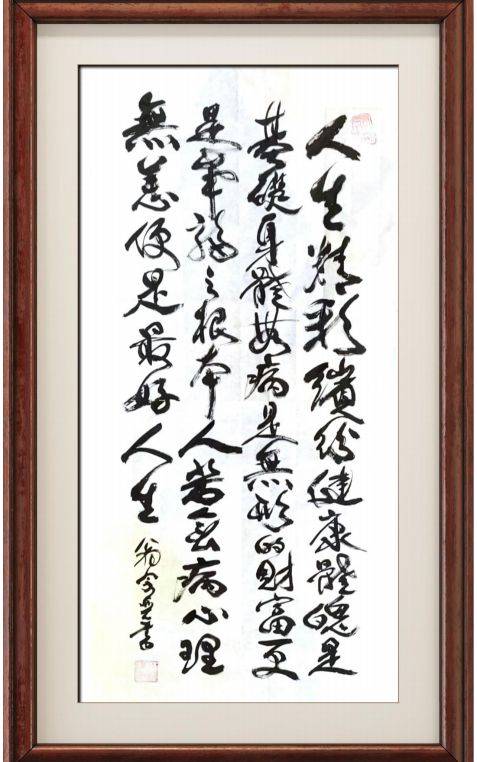 人生精彩繽紛健康體魄是
基礎身體病是無形的財富更
是幸福之根本人若病心理
無恙便是最好人生
翁書